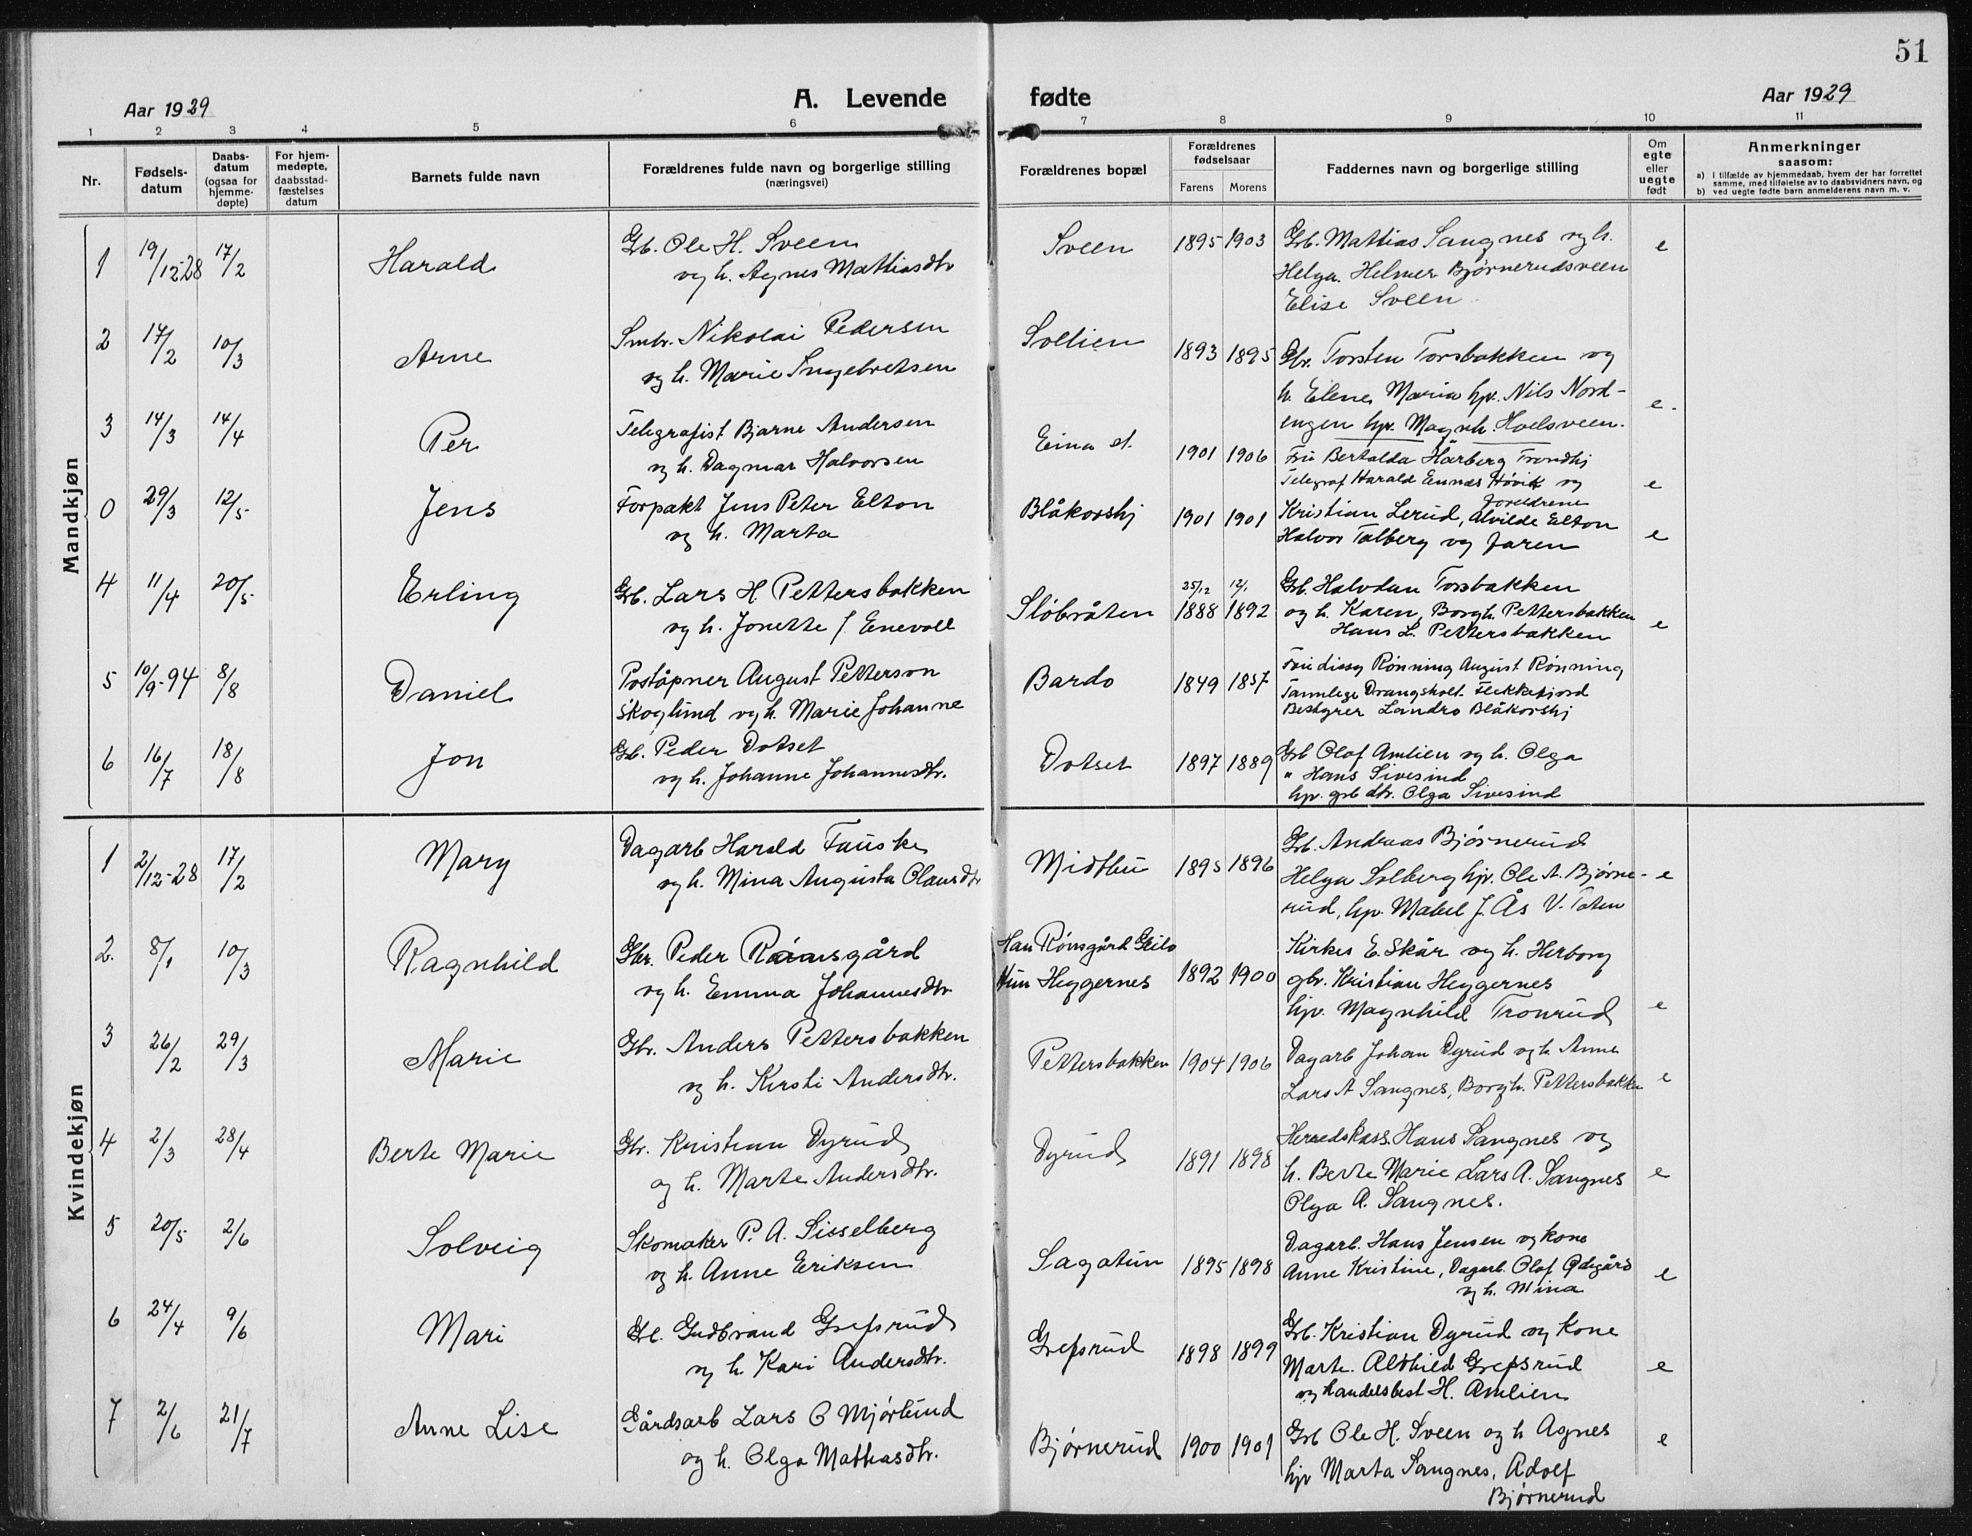 51
Aar 1929
A. Levende fødte
Aar 1929
1 2 3 4 5 6 7 8 9 10 11
Nr.
Fødsels-
datum
Daabs-
datum
(ogsaa for
hjemme-
døpte)
For hjem-
medøpte,
daabsstad-
fæstelses
datum
Barnets fulde navn
Forældrenes fulde navn og borgerlige stilling
(næringsvei)
Forældrenes bopæl
Forældrenes
fødselsaar
Farens Morens
Faddernes navn og borgerlige stilling
Om
egte
eller
uegte
født
Anmerkninger
saasom:
a) i tilfælde av hjemmedaab, hvem der har forrettet
samme, med tilføielse av to daabsvidners navn, og
b) ved uegte fødte barn anmelderens navn m. v.
Mandkjøn
1 19/12-28 17/2 Harald
Gb. Ole H. Sveen
og h. Agnes Mathiasdtr
Sveen 1895 1903
Gb. Mattias Sangnes og h.
Helga. Helmer Bjørnerudsveen
Elise Sveen
e
2 17/2 10/3 Arne
Smbr. Nikolai Pedersen
og h. Marie Ingebretsen
Sollien 1893 1895
Gbr. Torsten Torsbakken og
h. Elene, Maria hp. Nils Nord-
engen hp. Magnh. Hoelsveen.
e.
3 14/3 14/4 Per
Telegrafist Bjarne Andersen
og h. Dagmar Halvorsen
Eina st. 1901 1906
Fru Bertalda Harberg Trondhj
Telegraf Harald Ennæs Høvik og
foreldrene
e
0 29/3 12/5 Jens
Forpakt Jens Peter Elton
og h. Marta
Blåkorshj 1901 1901
Kristian Lerud, Alvilde Elton
Halvor Talberg og faren
e
4 11/4 20/5 Erling
Gb. Lars H. Pettersbakken
og h. Jonette f. Enevoll
Slobråten 25/12 1888 12/1 1892
Gb. Halvdan Torsbakken
og h. Karen, Borgh. Pettersbakken
Hans L. Pettersbakken
e
5 10/9-94 8/8 Daniel
Poståpner August Petterson
Skoglund og h. Marie Johanne
Bardo 1849 1857
Rønning August Rønning
Tannlege Drangsholt Flekkefjord
Bestyrer Landro Blåkorshj
6 16/7 18/8 Jon
Gb. Peder Dotset
og h. Johanne Johannesdtr.
Dotset 1897 1889
Gb Olof Amlien og h. Olga
" Hans Sivesind
hp. grb dtr. Olga Sivesind
Kvindekjøn
1 2/12-28 17/2 Mary
Dagarb Harald Fauske
og h. Mina Augusta Olausdtr
Midthu 1895 1896
Gb. Andreas Bjørnerud
Helga Solberg hp. Ole A. Bjørne-
rud, hp. Mabel J. Ås V. Toten
e
2. 8/1 10/3 Ragnhild
Gbr. Peder Rønsgård
og h. Emma Johannesdtr
Han Rønsgård Geilo
Hun Heggernes 1892 1900
Kirkes E. Skår og h. Herborg
gbr. Kristian Heggernes
hp. Magnhild Tronrud
e
3 26/2 29/3 Marie
Gbr. Anders Pettersbakken
og h. Kirsti Andersdtr.
Pettersbakken 1904 1906
Dagarb Johan Dyrud og h. Anne
Lars A Sangnes, Borgh. Pettersbakken
e
4 2/3 28/4 Berte Marie
Gbr. Kristian Dyrud
og h. Marte Andersdtr.
Dyrud 1891 1898
Herredskass. Hans Sangnes og
h. Berte Marie Lars A. Sangnes
Olga A. Sangnes.
e
5 20/5 2/6 Solveig
Skomaker P. A. Sisselberg
og h. Anne Eriksen
Sagatun 1895 1898
Dagarb. Hans Jensen og kone
Anne Kristine, Dagarb. Olof Ødegård
og h. Mina
e
6 24/4 9/6 Mari
Gb. Gudbrand Grefsrud
og h. Kari Andersdtr.
Grefsrud 1898 1899
Gb. Kristian Dyrud og kone
Marte. Aldhild Grefsrud
og handelsbest H. Amlien
e
7 2/6 21/7 Anne Lise
Gårdsarb Lars O Mjørlund
og h. Olga Mathiasdtr.
Bjørnerud 1900 1901
Gb Ole H. Sveen og h Agnes
hp Marta Sangnes, Adolf
Bjørnerud
e